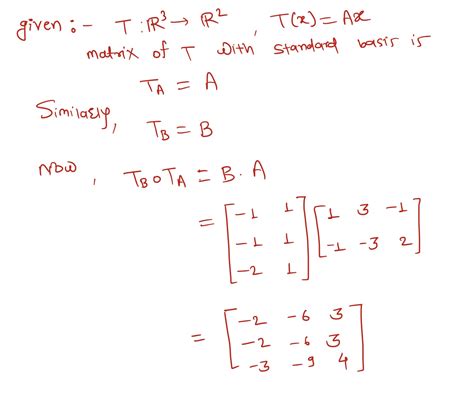 given :- T : ℝ³ → ℝ² , T(x) = Ax
matrix of T with standard basis is
T_A = A
Similarly,
T_B = B
Now , T_B o T_A = B . A
= [-1 1; -1 1; -2 1] [1 3 -1; -1 -3 2]
= [-2 -6 3; -2 -6 3; -3 -9 4]